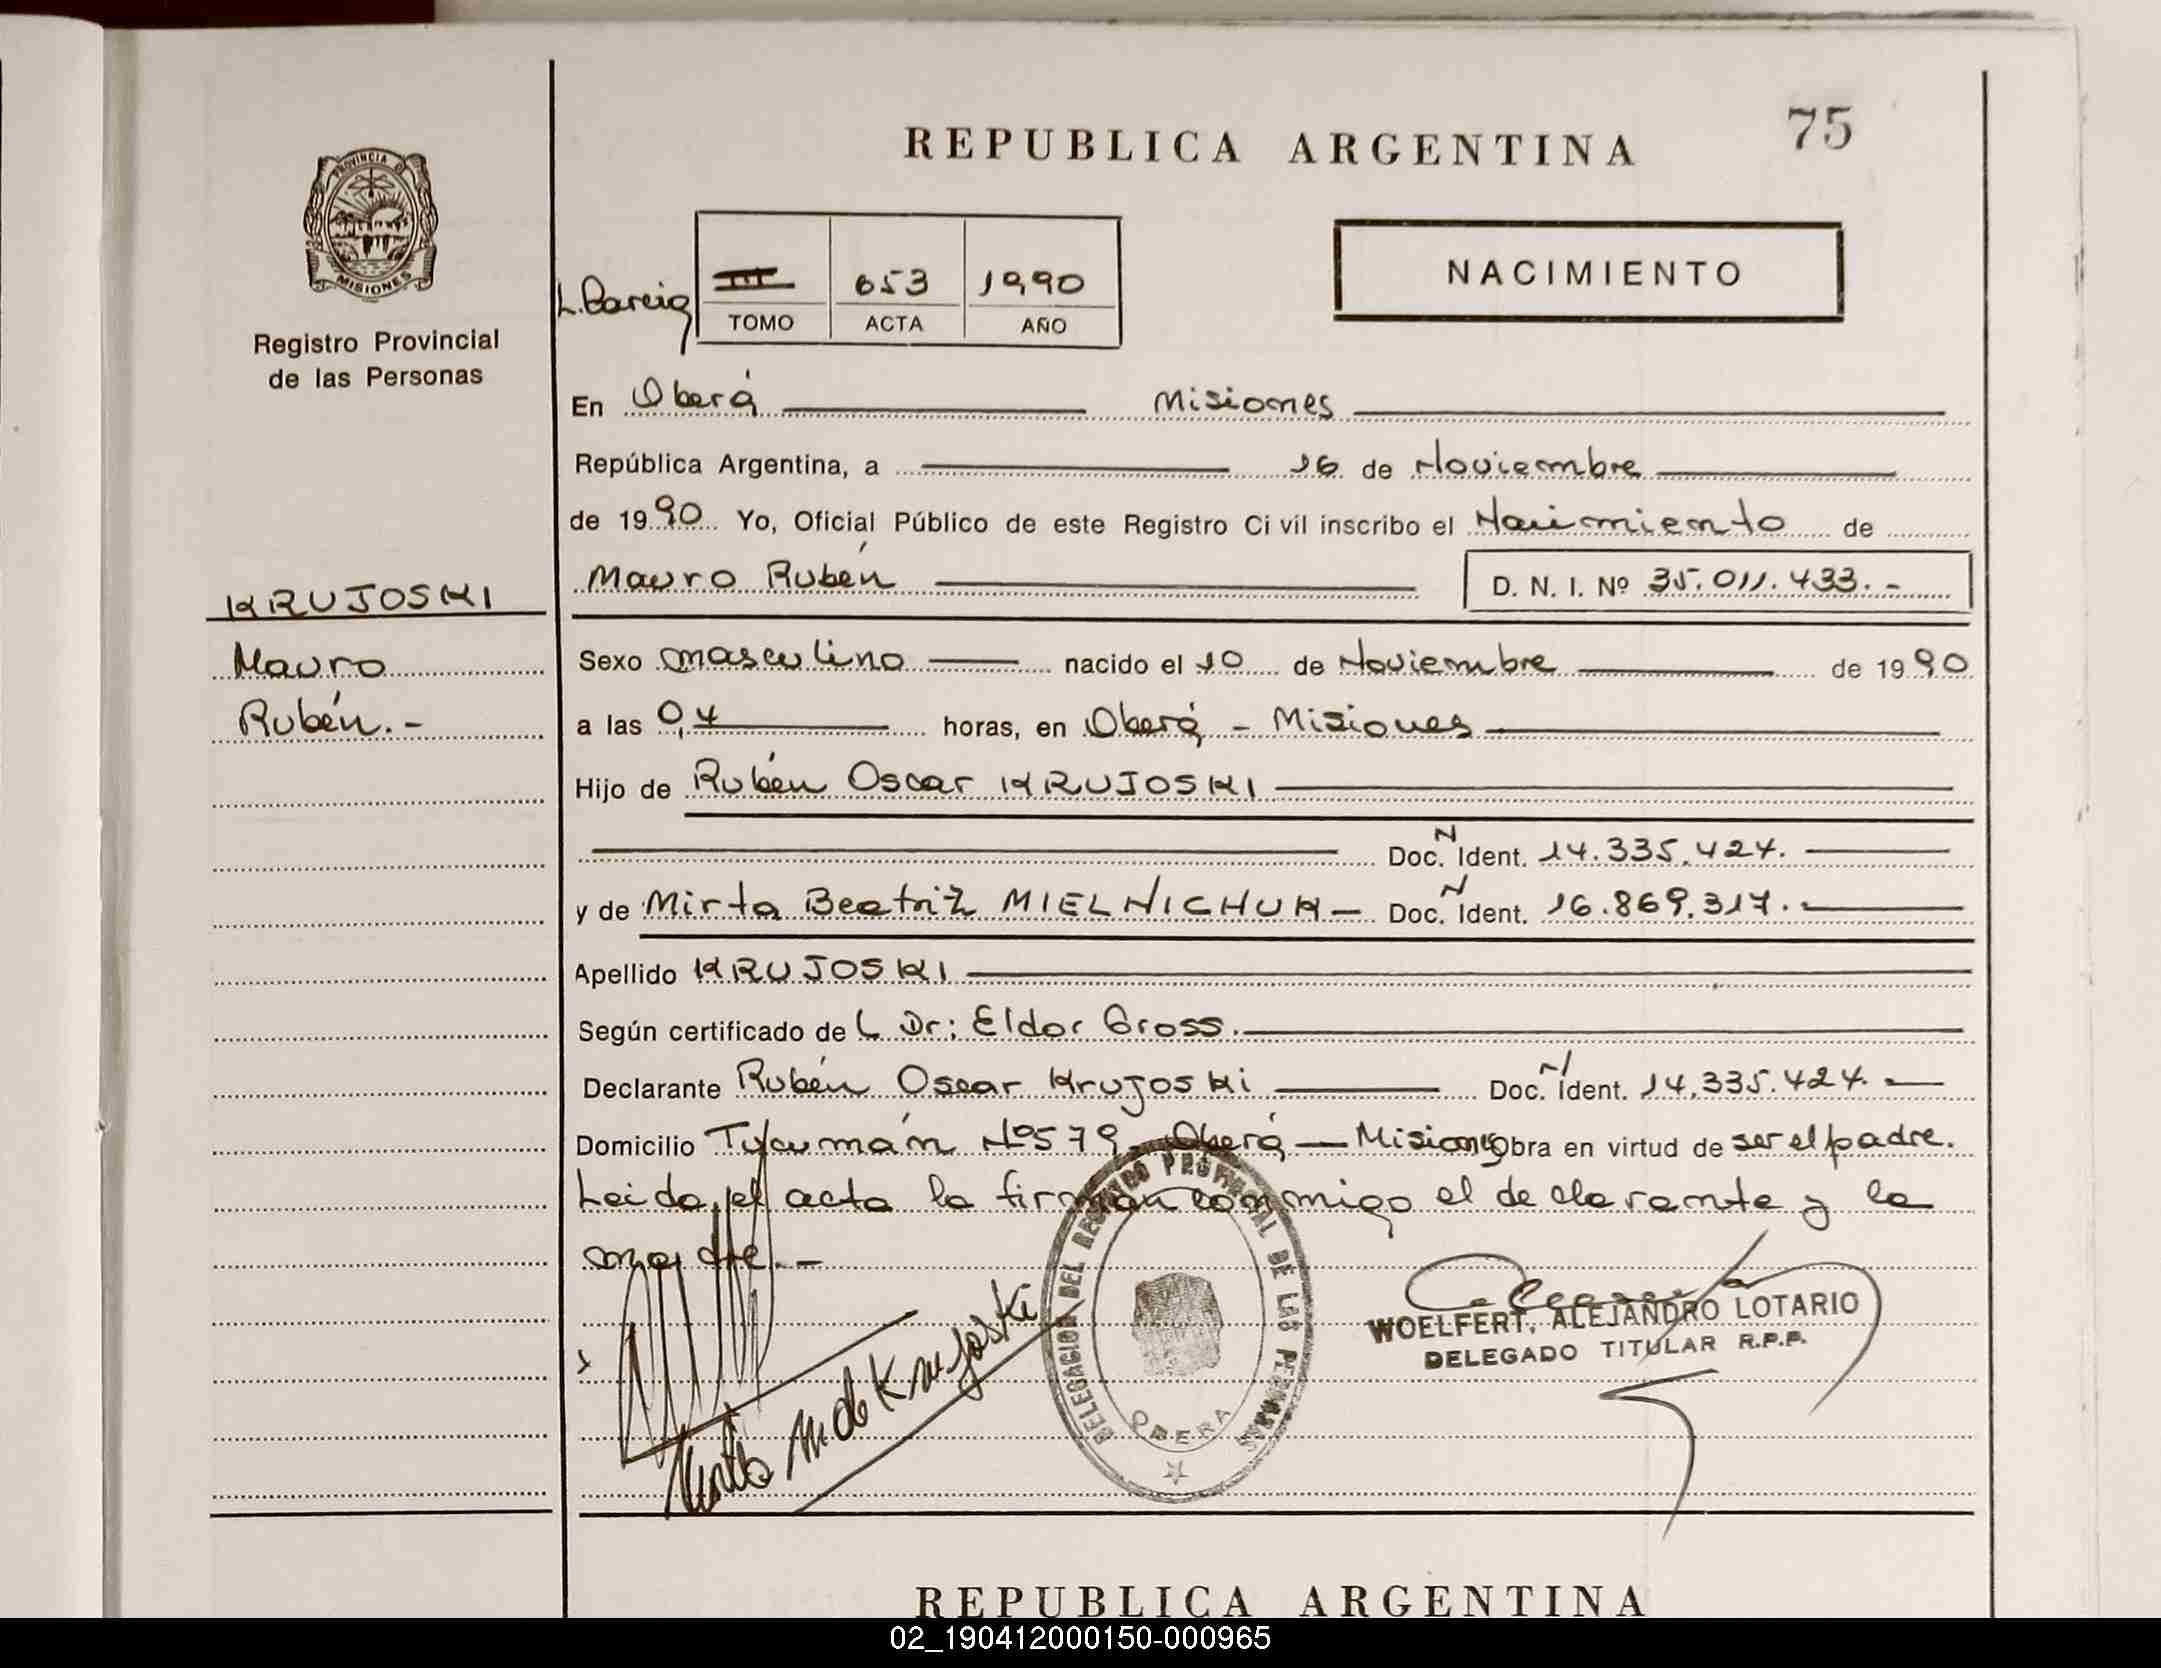 75
REPUBLICA ARGENTINA
PROVINCIA D
MISIONES
Registro Provincial
de las Personas
L. Pareig
III 653 1990
TOMO ACTA AÑO
NACIMIENTO
En Oberá Misiones
República Argentina, a 16 de Noviembre
de 1990 Yo, Oficial Público de este Registro Ci vil inscribo el Nacimiento de
Mauro Rubén D. N. I. Nº 35.011.433.-
KRUJOSKI
Mauro
Rubén.-
Sexo masculino nacido el 10 de Noviembre de 1990
a las 04 horas, en Oberá - Misiones
Hijo de Rubén Oscar KRUJOSKI
Doc. N Ident. 14.335.424.
y de Mirta Beatriz MIELNICHUK - Doc. N Ident. 16.869.317.
Apellido KRUJOSKI
Según certificado de L Dr: Eldor Gross.
Declarante Rubén Oscar Krujoski Doc. N Ident. 14.335.424.
Domicilio Tucumán Nº 579 - Oberá - Misiones obra en virtud de ser el padre.
Leida el acta la firman conmigo el declarante y la
madre.-
Mirta M de Krujoski
DELEGACION DEL REGISTRO PROVINCIAL DE LAS PERSONAS
OBERA
WOELFERT, ALEJANDRO LOTARIO
DELEGADO TITULAR R.P.P.
REPUBLICA ARGENTINA
02_190412000150-000965